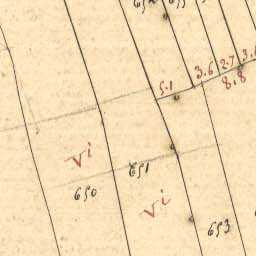 5.1
3.6
2.7
8.8
Vi
651
650
Vi
653